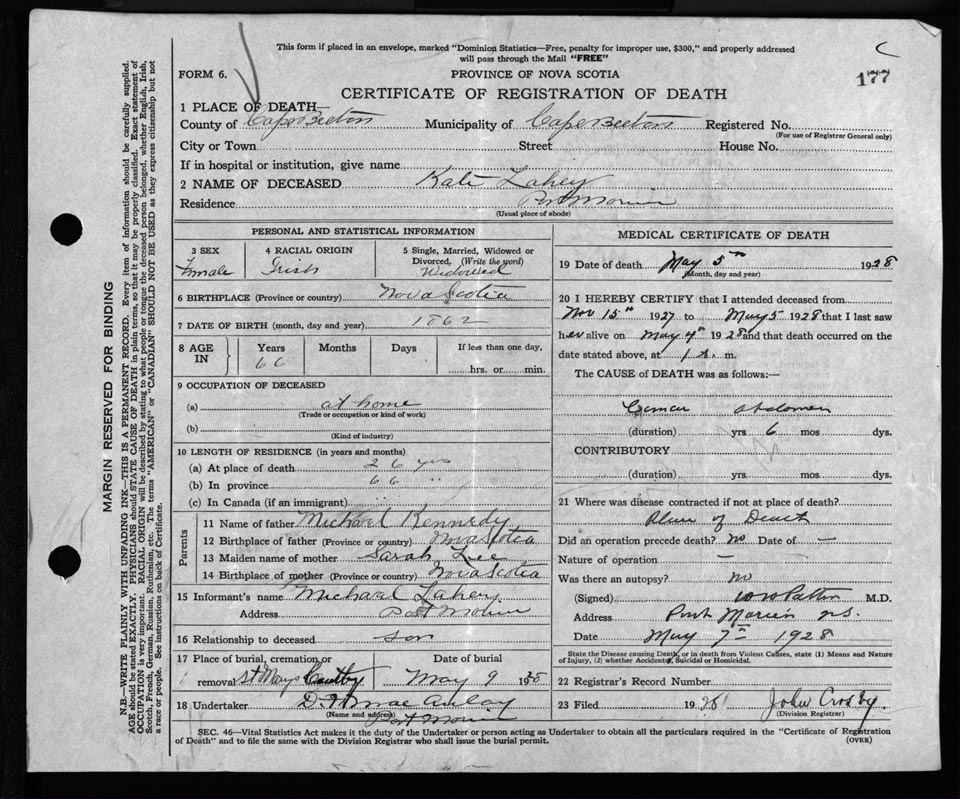 This form if placed in an envelope, marked "Dominion Statistics—Free, penalty for improper use, $300," and properly addressed
will pass through the Mail "FREE"
FORM 6.
PROVINCE OF NOVA SCOTIA
177
CERTIFICATE OF REGISTRATION OF DEATH
1 PLACE OF DEATH—
County of Cape Breton Municipality of Cape Breton Registered No.
(For use of Registrar General only)
City or Town Street House No.
If in hospital or institution, give name
2 NAME OF DECEASED Kate Lahey
Residence Port Morien
(Usual place of abode)
PERSONAL AND STATISTICAL INFORMATION
3 SEX 4 RACIAL ORIGIN 5 Single, Married, Widowed or
Divorced, (Write the word)
Female Irish Widowed
6 BIRTHPLACE (Province or country) Nova Scotia
7 DATE OF BIRTH (month, day and year) 1862
8 AGE IN Years Months Days If less than one day,
66 hrs. or min.
9 OCCUPATION OF DECEASED
(a) at home
(Trade or occupation or kind of work)
(b)
(Kind of industry)
10 LENGTH OF RESIDENCE (in years and months)
(a) At place of death 26 yrs
(b) In province 66 "
(c) In Canada (if an immigrant) "
Parents
11 Name of father Michael Kennedy
12 Birthplace of father (Province or country) Nova Scotia
13 Maiden name of mother Sarah Lee
14 Birthplace of mother (Province or country) Nova Scotia
15 Informant's name Michael Lahey
Address Port Morien
16 Relationship to deceased son
17 Place of burial, cremation or Date of burial
removal St Marys May 9 19
18 Undertaker D. Mac Aulay
(Name and address) Port Morien
MEDICAL CERTIFICATE OF DEATH
19 Date of death May 5th 1928
(Month, day and year)
20 I HEREBY CERTIFY that I attended deceased from
Nov 15th 1927 to May 5 1928 that I last saw
her alive on May 4th 1928 and that death occurred on the
date stated above, at 1 A. m.
The CAUSE of DEATH was as follows:—
abdomen
(duration) yrs 6 mos dys.
CONTRIBUTORY
(duration) yrs mos dys.
21 Where was disease contracted if not at place of death?
Place of Death
Did an operation precede death? no Date of —
Nature of operation —
Was there an autopsy? no
(Signed) M.D.
Address Port Morien N.S.
Date May 7th 1928
State the Disease causing Death, or in death from Violent Causes, state (1) Means and Nature
of Injury, (2) whether Accidental, Suicidal or Homicidal.
22 Registrar's Record Number
23 Filed 1928 John Crosby
(Division Registrar)
SEC. 46—Vital Statistics Act makes it the duty of the Undertaker or person acting as Undertaker to obtain all the particulars required in the "Certificate of Registration
of Death" and to file the same with the Division Registrar who shall issue the burial permit.
(OVER)
MARGIN RESERVED FOR BINDING
N.B.—WRITE PLAINLY WITH UNFADING INK—THIS IS A PERMANENT RECORD. Every item of information should be carefully supplied.
AGE should be stated EXACTLY. PHYSICIANS should STATE CAUSE OF DEATH in plain terms, so that it may be properly classified. Exact statement of
OCCUPATION is very important. RACIAL ORIGIN will be described by stating to what people or tongue the deceased person belonged, whether English, Irish,
Scotch, French, German, Russian, Ruthenian, etc. The terms "AMERICAN" or "CANADIAN" SHOULD NOT BE USED as they express citizenship but not
a race or people. See instructions on back of Certificate.